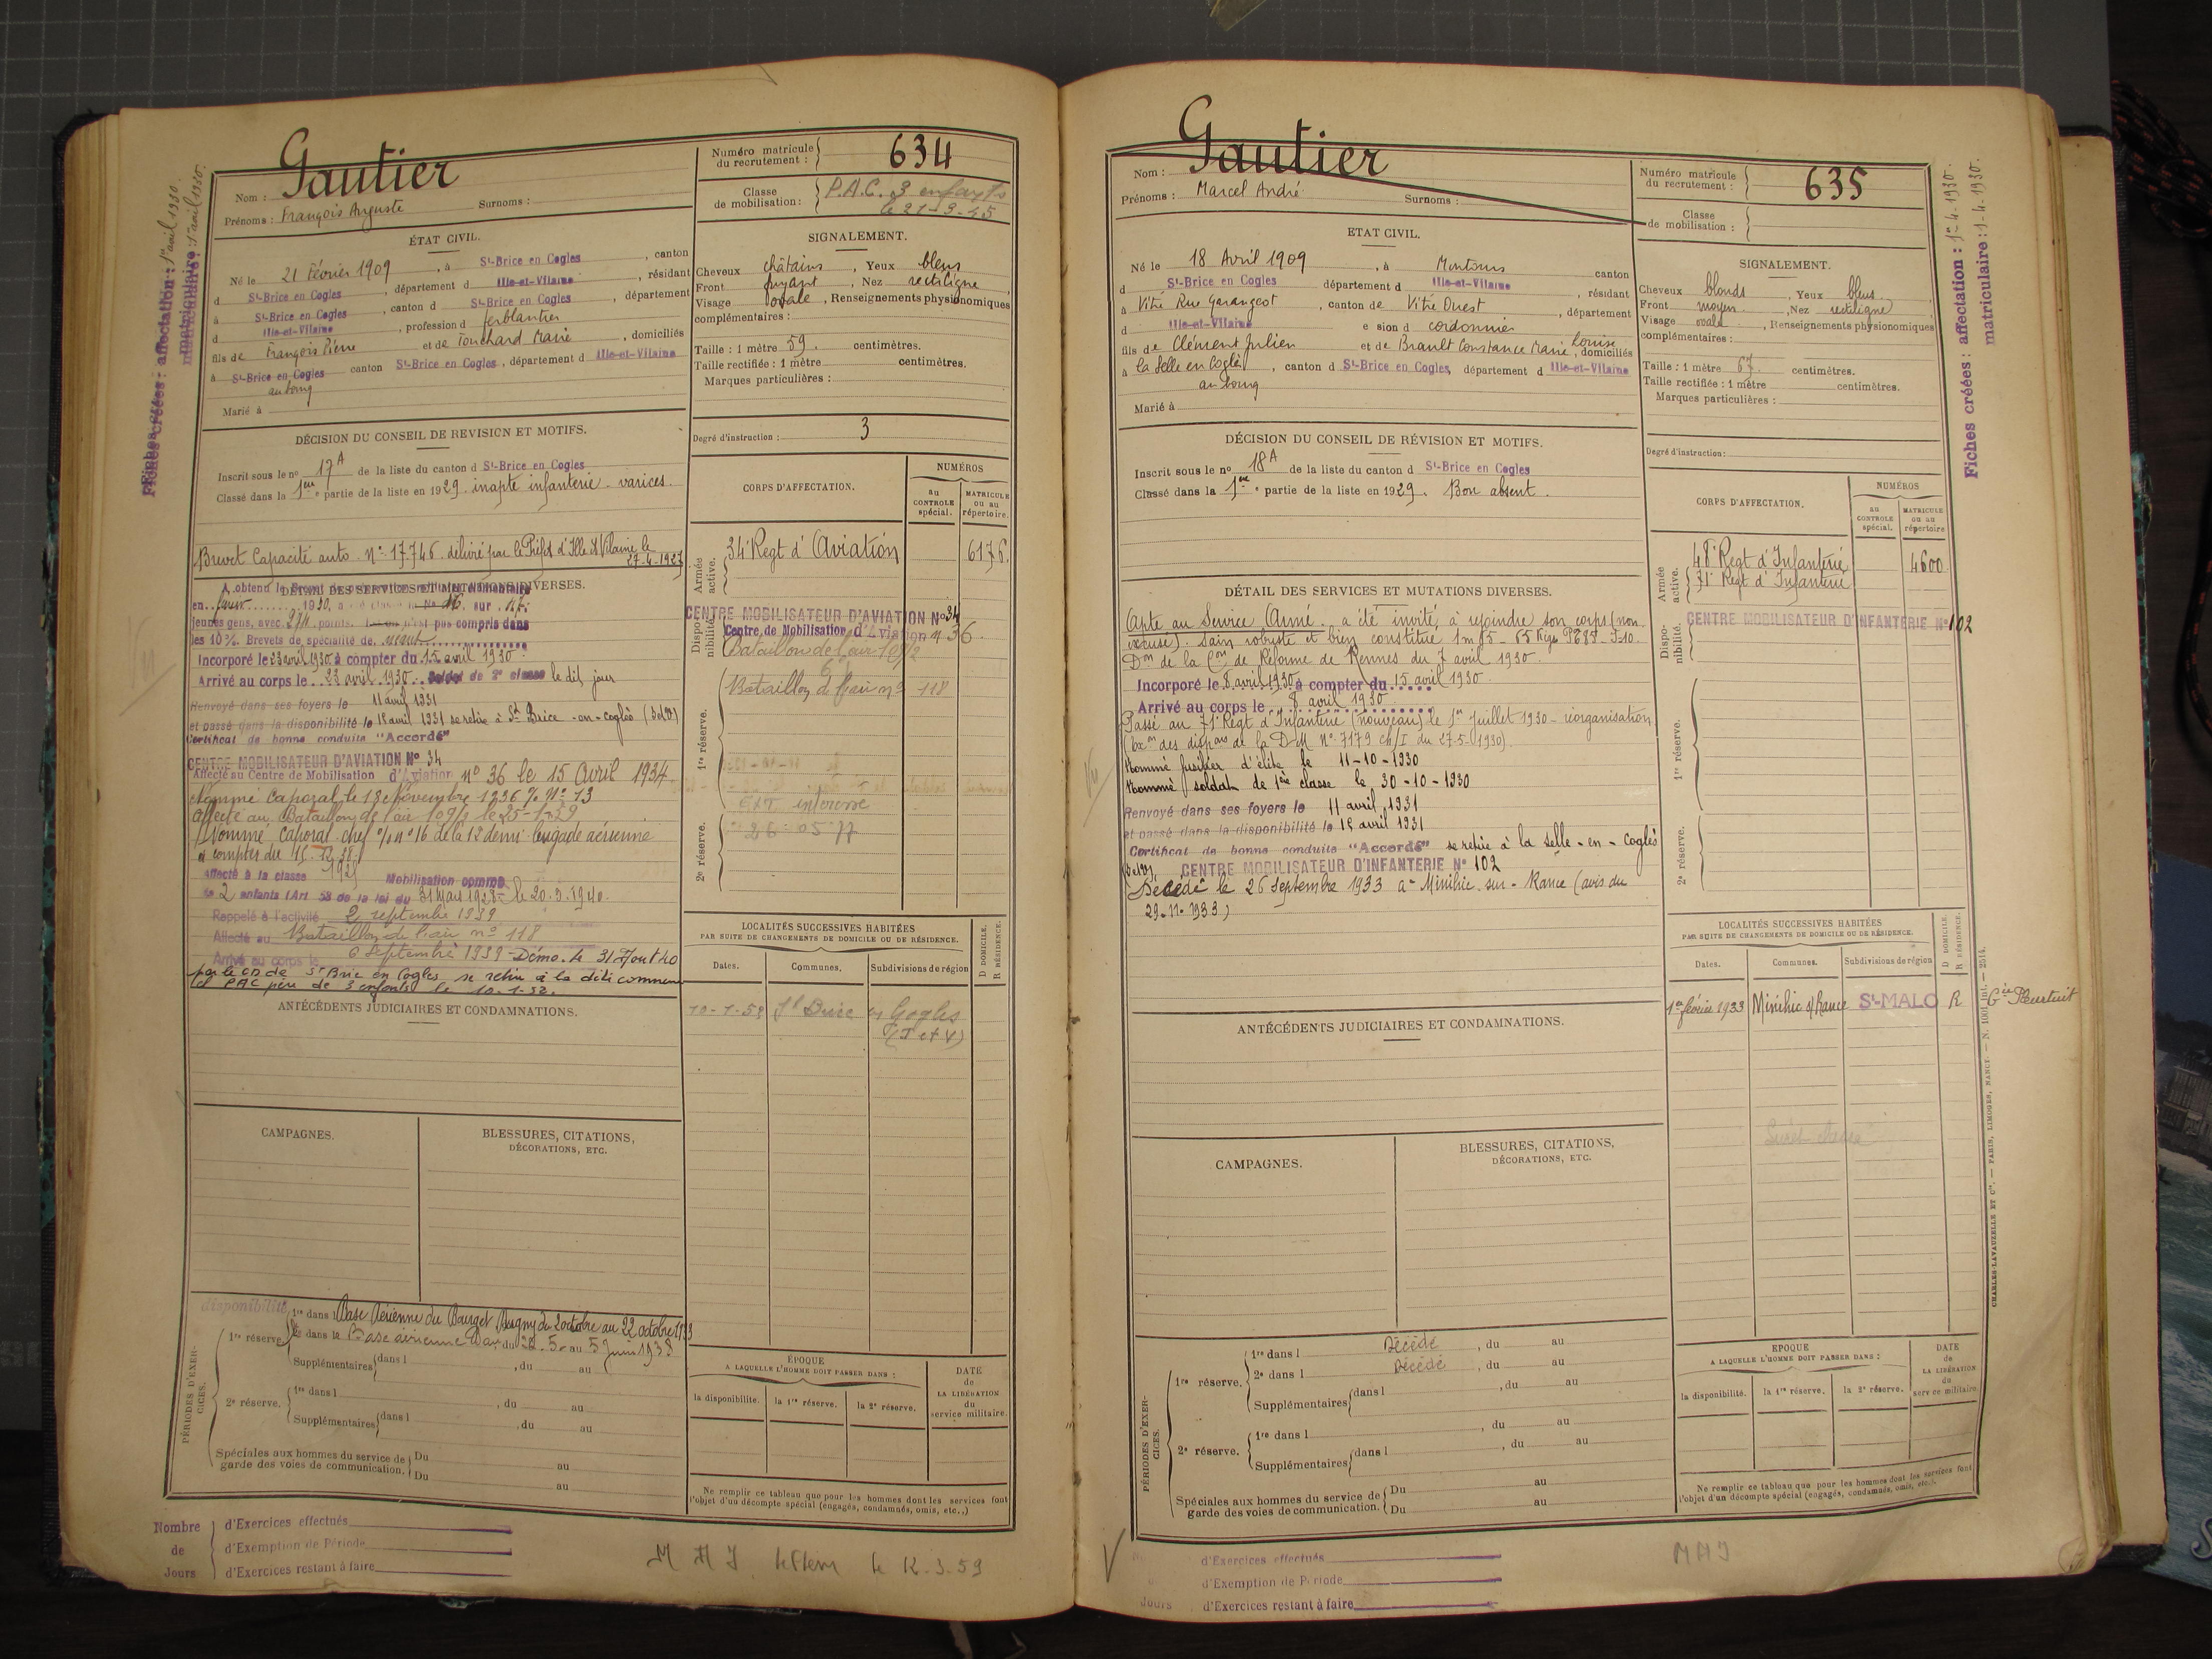 Gautier
Nom :
Prénoms : François Auguste Surnoms :
Numéro matricule du recrutement : 634
Classe de mobilisation : P.A.C. 3 enfants
le 21-3-45
ÉTAT CIVIL.
Né le 21 février 1909, à St-Brice en Cogles, canton
d St-Brice en Cogles, département d Ille-et-Vilaine, résidant
à St-Brice en Cogles, canton d St-Brice en Cogles, département
d Ille-et-Vilaine, profession d ferblantier
fils de François Pierre et de Touchard Marie, domiciliés
à St-Brice en Cogles canton St-Brice en Cogles, département d Ille-et-Vilaine
au bourg
Marié à
SIGNALEMENT.
Cheveux châtains, Yeux bleus
Front fuyant, Nez rectiligne,
Visage ovale, Renseignements physionomiques
complémentaires :
Taille : 1 mètre 59. centimètres.
Taille rectifiée : 1 mètre centimètres.
Marques particulières :
Degré d'instruction : 3
DÉCISION DU CONSEIL DE REVISION ET MOTIFS.
Inscrit sous le no 17A de la liste du canton d St-Brice en Cogles
Classé dans la 1ère partie de la liste en 1929 inapte infanterie - varices.
Brevet Capacité auto n° 17.746 délivré par le Préfet d'Ille et Vilaine le
27-4-1927
DÉTAIL DES SERVICES ET MUTATIONS DIVERSES.
Incorporé le 23 avril 1930 à compter du 15 avril 1930
Arrivé au corps le 23 avril 1930. Soldat de 2e classe le dit jour
Renvoyé dans ses foyers le 11 avril 1931
et passé dans la disponibilité le 15 avril 1931 se retire à St Brice-en-Coglès
Certificat de bonne conduite "Accordé"
CENTRE MOBILISATEUR D'AVIATION No 34
Affecté au Centre de Mobilisation d'Aviation no 36 le 15 Avril 1934.
Nommé Caporal le 13 Novembre 1936 % No 13
Affecté au Bataillon de l'air 109/2 le 25-1-39
Nommé caporal-chef o/n n° 16 de la 12 demi-brigade aérienne
à compter du 15.12.38.
Affecté à la classe Mobilisation comme
2 enfants (Art 58 de la loi du 31 Mars 1928 le 20.3.1940.
Rappelé à l'activité 2 septembre 1939
Affecté au Bataillon de l'air no 118
Arrivé au corps le 6 Septembre 1939 - Démo. le 31 Aout 40
par le CD de St Brice en Cogles se retire à la dite commune
père de 3 enfants le 10-1-52.
CORPS D'AFFECTATION.
NUMÉROS
au CONTROLE spécial.
MATRICULE ou au répertoire.
Armée active.
34e Regt d'Aviation 6176
Disponibilité.
CENTRE MOBILISATEUR D'AVIATION No 34
Centre de Mobilisation d'Aviation no 36.
Bataillon de l'air 109/2
1re réserve.
Bataillon de l'air no 118
2e réserve.
ANTÉCÉDENTS JUDICIAIRES ET CONDAMNATIONS.
LOCALITÉS SUCCESSIVES HABITÉES
PAR SUITE DE CHANGEMENTS DE DOMICILE OU DE RÉSIDENCE.
Dates. Communes. Subdivisions de région
D DOMICILE. R RÉSIDENCE.
St Brice en Cogles
(I et V)
CAMPAGNES.
BLESSURES, CITATIONS, DÉCORATIONS, ETC.
PÉRIODES D'EXERCICES.
disponibilité 1re dans Base Aérienne du Bourget Dugny du 2 octobre au 22 octobre 1933
1re réserve. 2e dans la Base aérienne du 22.5 au 5 juin 1938
Supplémentaires dans l , du au
2e réserve. 1re dans l , du au
Supplémentaires dans l , du au
Spéciales aux hommes du service de garde des voies de communication. Du au
Du au
ÉPOQUE
A LAQUELLE L'HOMME DOIT PASSER DANS :
la disponibilité. la 1re réserve. la 2e réserve.
DATE de LA LIBÉRATION du service militaire.
Ne remplir ce tableau que pour les hommes dont les services font
l'objet d'un décompte spécial (engagés, condamnés, omis, etc..)
Nombre de Jours
d'Exercices effectués
d'Exemption de Période
d'Exercices restant à faire
le 12.3.59
Fiches créées : affectation : 1er avril 1930.
matriculaire : 1er avril 1930.
Gautier
Nom :
Prénoms : Marcel André Surnoms :
Numéro matricule du recrutement : 635
Classe de mobilisation :
ETAT CIVIL.
Né le 18 Avril 1909, à Montours canton
d St-Brice en Cogles département d Ille-et-Vilaine, résidant
à Vitré Rue Garangeot, canton de Vitré Ouest, département
d Ille-et-Vilaine e sion d cordonnier
fils de Clément Julien et de Brault Constance Marie Louise, domiciliés
à la Selle en Coglès, canton d St-Brice en Cogles, département d Ille-et-Vilaine
au bourg
Marié à
SIGNALEMENT.
Cheveux blonds, Yeux bleus
Front moyen, Nez rectiligne
Visage ovale, Renseignements physionomiques
complémentaires :
Taille : 1 mètre 67. centimètres.
Taille rectifiée : 1 mètre centimètres.
Marques particulières :
Degré d'instruction :
DÉCISION DU CONSEIL DE RÉVISION ET MOTIFS.
Inscrit sous le no 18A de la liste du canton d St-Brice en Cogles
Classé dans la 1ère partie de la liste en 1929. Bon absent.
DÉTAIL DES SERVICES ET MUTATIONS DIVERSES.
Apte au Service Armé. a été invité à rejoindre son corps (non
excusé). sain robuste et bien constitué 1m65 - 65 Kigs
Don de la Con de Réforme de Rennes du 7 avril 1930.
Incorporé le 8 avril 1930 à compter du 15 avril 1930.
Arrivé au corps le 8 avril 1930
Passé au 71e Regt d'Infanterie (nouveau) le 1er Juillet 1930 - réorganisation
des dispons de la D.M. No 7179 du 27-5-1930).
Nommé fusilier d'élite le 11-10-1930
Nommé soldat de 1ère classe le 30-10-1930
Renvoyé dans ses foyers le 11 avril 1931
et passé dans la disponibilité le 15 avril 1931
Certificat de bonne conduite "Accordé" se retire à la Selle-en-Coglès
CENTRE MOBILISATEUR D'INFANTERIE No 102
Décédé le 26 Septembre 1933 à Minihic-sur-Rance (avis du
29-11-1933)
CORPS D'AFFECTATION.
NUMÉROS
au CONTROLE spécial.
MATRICULE ou au répertoire
Armée active.
48e Regt d'Infanterie 4600
71e Regt d'Infanterie
Disponibilité.
CENTRE MOBILISATEUR D'INFANTERIE No 102
1re réserve.
2e réserve.
ANTÉCÉDENTS JUDICIAIRES ET CONDAMNATIONS.
LOCALITÉS SUCCESSIVES HABITÉES
PAR SUITE DE CHANGEMENTS DE DOMICILE OU DE RÉSIDENCE.
Dates. Communes. Subdivisions de région
D DOMICILE. R RÉSIDENCE.
1er février 1933 Minihic s/Rance St-MALO R Gie Pleurtuit
CAMPAGNES.
BLESSURES, CITATIONS, DÉCORATIONS, ETC.
PÉRIODES D'EXERCICES.
1re réserve. 1re dans l Décédé, du au
2e dans l Décédé, du au
Supplémentaires dans l , du au
2e réserve. 1re dans l , du au
Supplémentaires dans l , du au
Spéciales aux hommes du service de garde des voies de communication. Du au
Du au
EPOQUE
A LAQUELLE L'HOMME DOIT PASSER DANS :
la disponibilité. la 1re réserve. la 2e réserve.
DATE de LA LIBÉRATION du service militaire.
Ne remplir ce tableau que pour les hommes dont les services font
l'objet d'un décompte spécial (engagés, condamnés, omis, etc..).
Jours
d'Exercices effectués
d'Exemption de Période
d'Exercices restant à faire
MAJ
Fiches créées : affectation : 1er-4-1930.
matriculaire : 1-4-1930.
CHARLES-LAVAUZELLE ET Cie. — PARIS, LIMOGES, NANCY. — N. 1001 Int. — 2514.